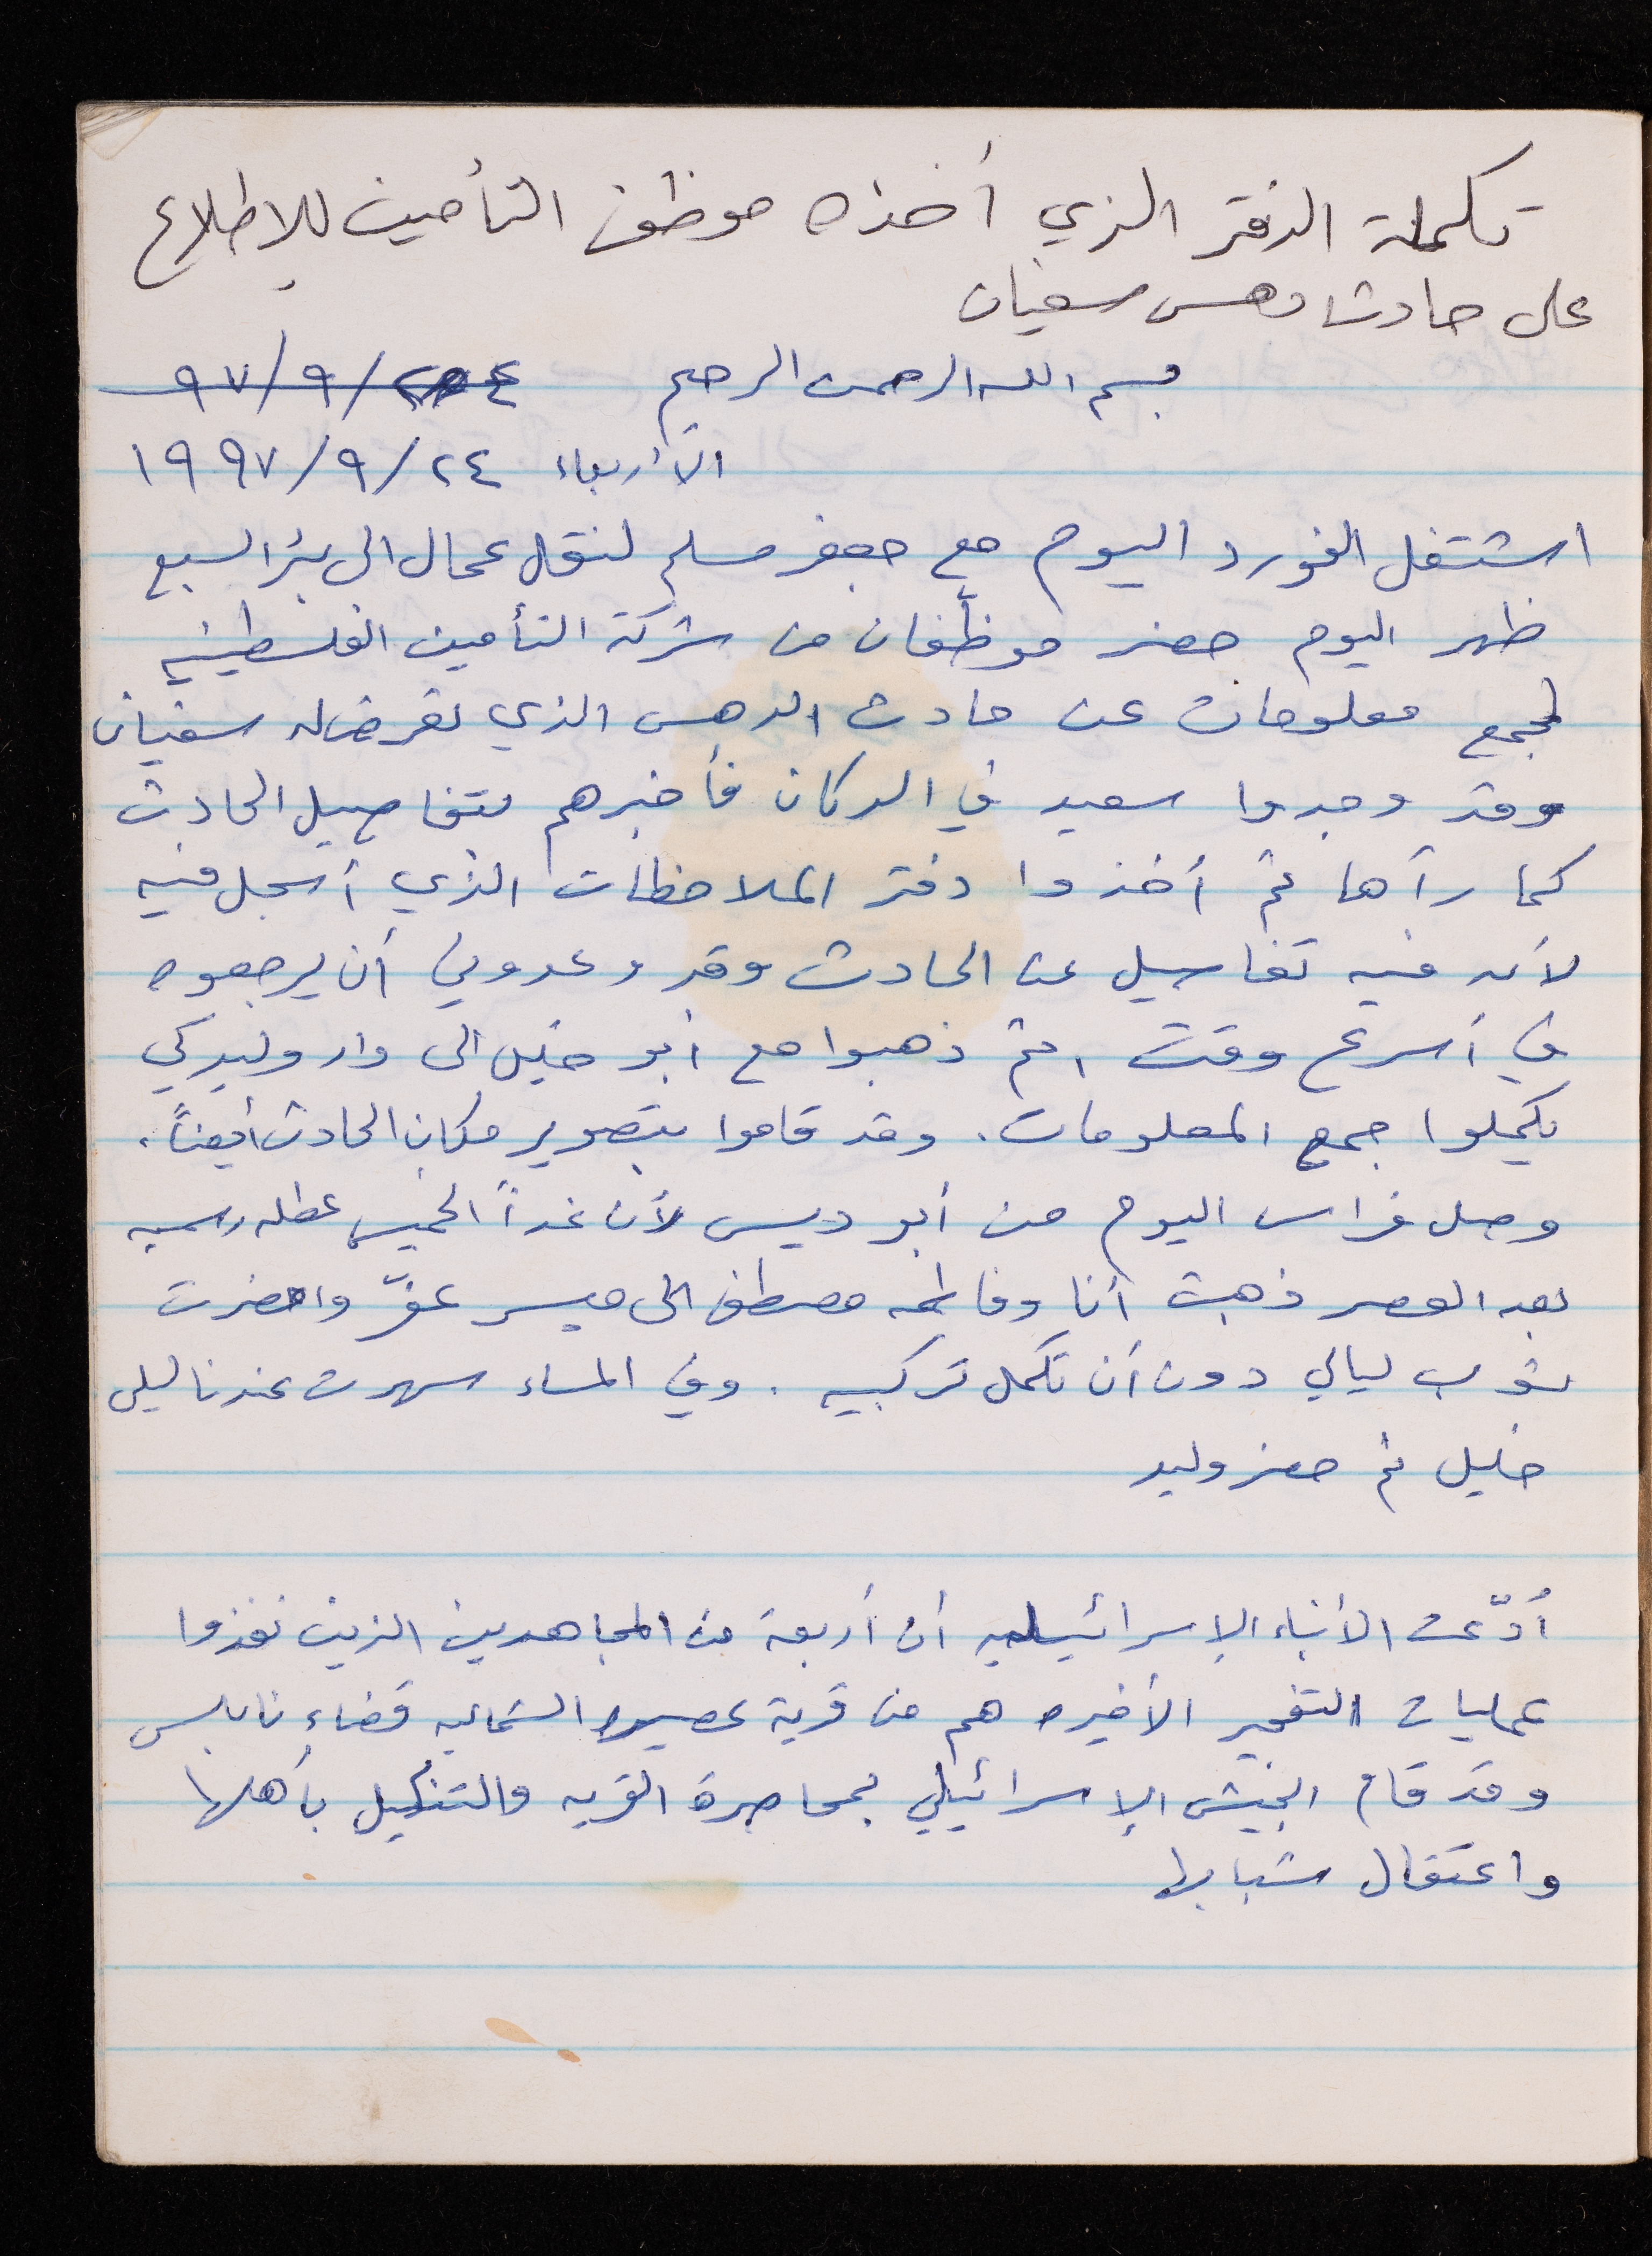 تكملة الدفتر الذي أخذه موظف التأمين للإطلاع
على حادث دهس سفيان
بسم الله الرحمن الرحيم ٩٧/٩/٢٤
الأربعاء ٢٤/٩/١٩٩٧
اشتغل الفورد اليوم مع جعفر مسلم لنقل عمال الى بئر السبع
ظهر اليوم حضر موظّفان من شركة التأمين الفلسطينيه
لجمع معلومات عن حادث الدهس الذي تعرض له سفيان
وقد وجدوا سعيد في الدكان فأخبرهم بتفاصيل الحادث
كما رآها ثم أخذوا دفتر الملاحظات الذي أسجل فيه
لأنه فيه تفاسيل عن الحادث وقد وعدوني أن يرجعوه
في أسرع وقت ، ثم ذهبوا مع أبو خليل الى دار وليد كي
يكملوا جمع المعلومات . وقد قاموا بتصوير مكان الحادث أيضاً .
وصل فراس اليوم من أبو ديس لأن غداً الخميس عطله رسميه
بعد العصر ذهبت أنا وفاطمه مصطفى الى ميسر عفّ واحضرت
ثوب ليالي دون أن تكمل تركيبه . وفي المساء سهرت عندنا ليلى
خليل ثم حضر وليد
أدّعت الأنباء الإسرائيليه أن أربعة من المجاهدين الذين نفذوا
عمليات التفجير الأخيره هم من قرية عصيره الشماليه قضاء نابلس
وقد قام الجيش الإسرائيلي بمحاصرة القريه والتنكيل بأهلها
واعتقال شبابها